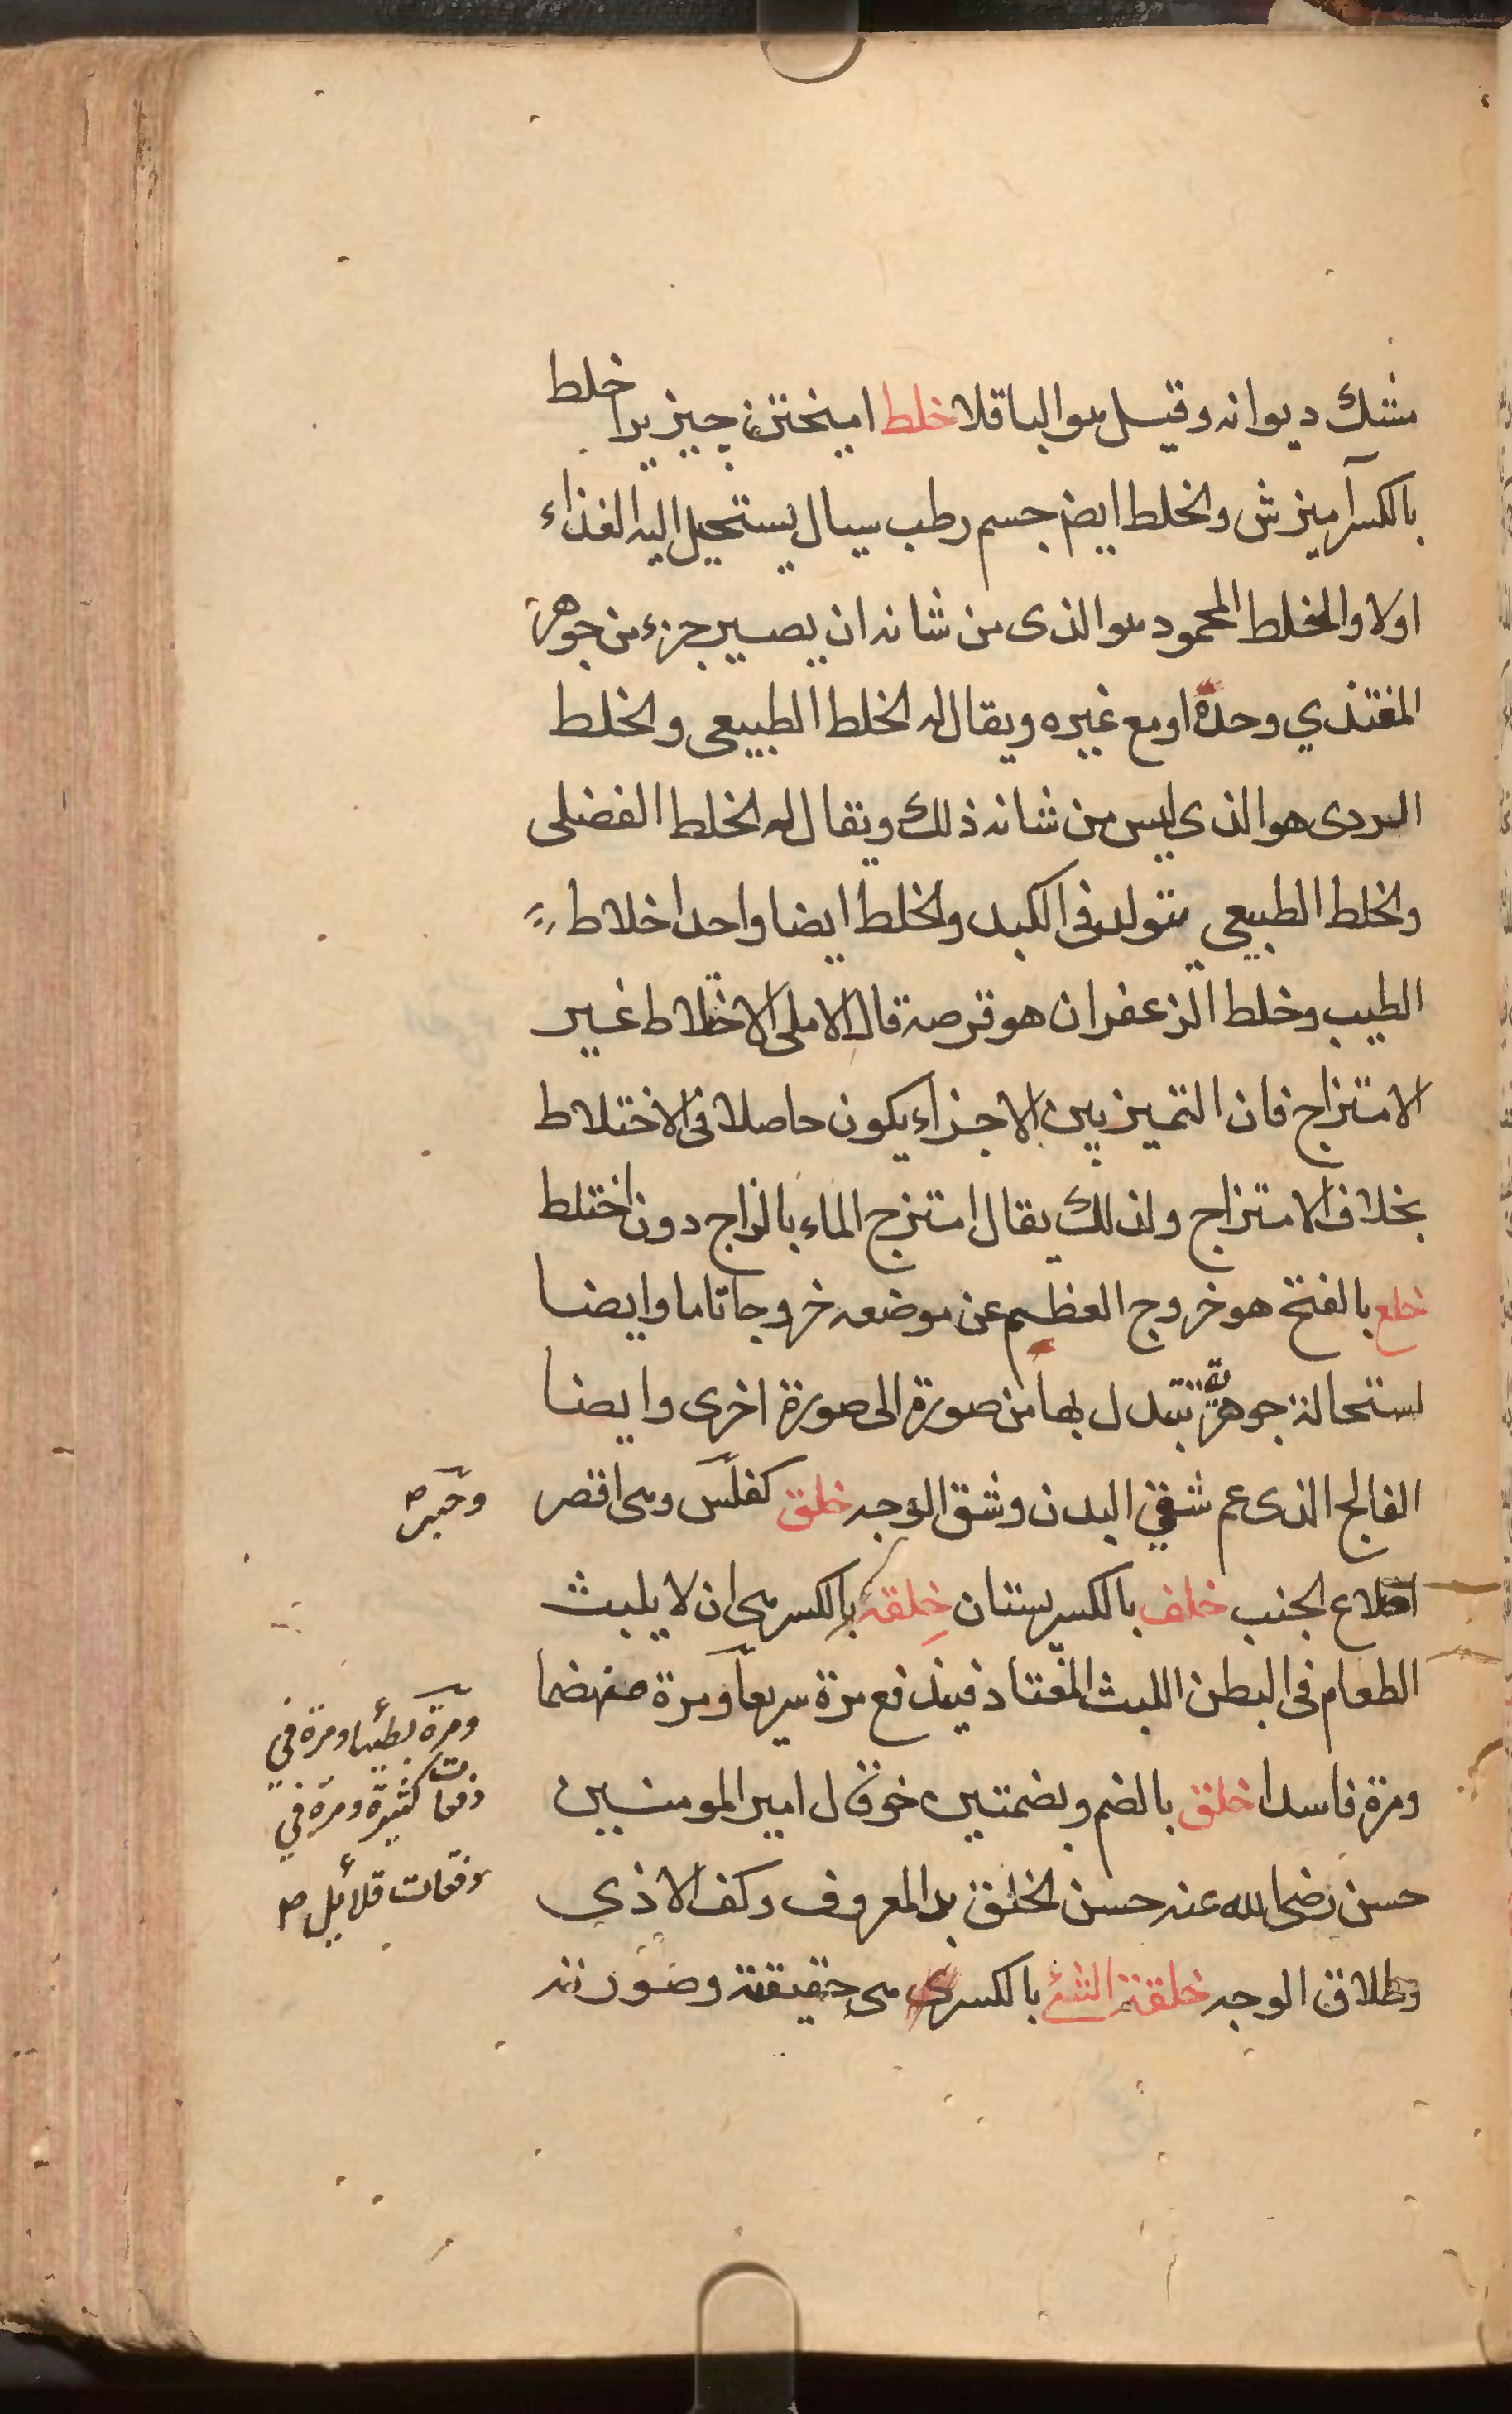 مشك ديوانه وقيل هو الباقلا خلط اميختن چيزيرا خلط
بالكسر آميزش والخلط ايضا جسم رطب سيال يستحيل اليه الغذاء
اولا والخلط المحمود هو الذى من شانه ان يصير جزء من جوهر
المغتذي وحدة او مع غيره ويقال له الخلط الطبيعى والخلط
الردى هو الذى ليس من شانه ذلك ويقال له الخلط الفضلى
والخلط الطبيعي يتولد فى الكبد والخلط ايضا واحد اخلاط
الطيب وخلط الزعفران هو قرصه قال الاملى الاختلاط غير
الامتزاج فان التميز بين الاجزاء يكون حاصلا فى الاختلاط
بخلاف الامتزاج ولذلك يقال امتزج الماء بالزاج دون اختلط
خلع بالفتح هو خروج العظم عن موضعه خروجا تاما وايضا
استحالة جوهرية تتبدل بها من صورة الى صورة اخرى وايضا
الفالج الذى عم شقي البدن وشق الوجه خلق كفلس وهى اقصر
اضلاع الجنب خلف بالكسر پستان خلفة بالكسر هى ان لا يلبث
الطعام فى البطن اللبث المعتاد فيندفع مرة سريعا ومرة منهضما
ومرة فاسدا خلق بالضم وبضمتين خو قال امير المومنين
حسن رضى الله عنه حسن الخلق بذل المعروف وكف الاذى
وطلاق الوجه خلقة الشئ بالكسر هى حقيقته وصورته
ومرة بطئيا ومرة في
دفعات كثيرة ومرة في
دفعات قلائل صح